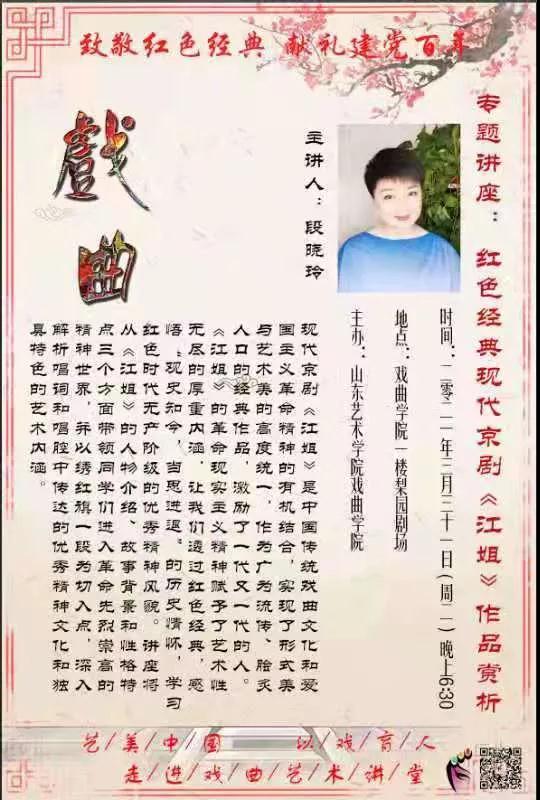 致敬红色经典 献礼建党百年
专题讲座：红色经典现代京剧《江姐》作品赏析
时间：二零二一年三月三十一日(周二)晚上6:30
地点：戏曲学院一楼梨园剧场
主办：山东艺术学院戏曲学院
主讲人：段晓玲
戲曲
现代京剧《江姐》是中国传统戏曲文化和爱
国主义革命精神的有机结合，实现了形式美
与艺术美的高度统一，作为广为流传、脍炙
人口的经典作品，激励了一代又一代的人。
《江姐》的革命现实主义精神赋予了艺术性
无尽的厚重内涵，让我们透过红色经典，感
悟“观史知今，当思进退”的历史情怀，学习
红色时代无产阶级的优秀精神风貌。讲座将
从《江姐》的人物介绍、故事背景和性格特
点三个方面带领同学们进入革命先烈崇高的
精神世界，并以绣红旗一段为切入点，深入
解析唱词和唱腔中传达的优秀精神文化和独
具特色的艺术内涵。
艺/美/中/国/ 以/戏/育/人
走/进/戏/曲/艺/术/讲/堂